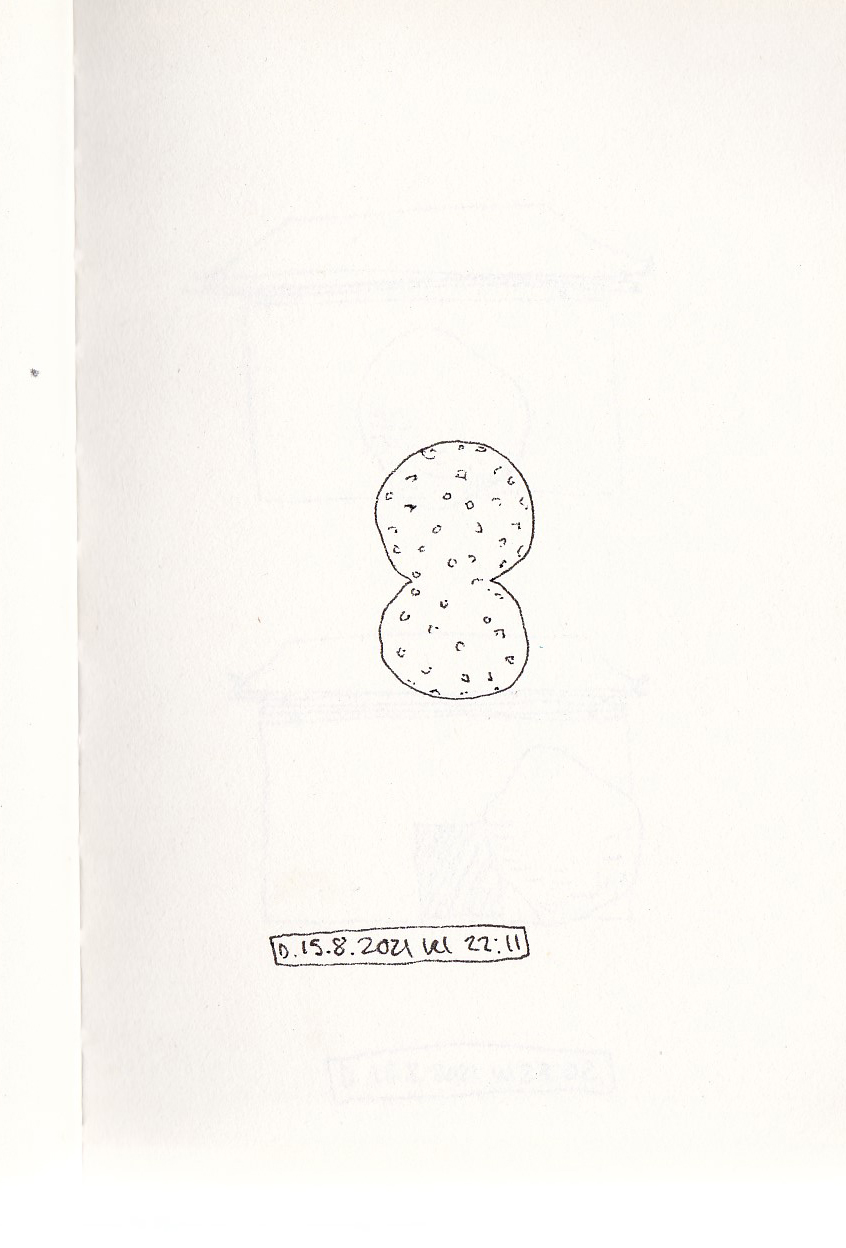 D. 15.8.2021 kl 22:11